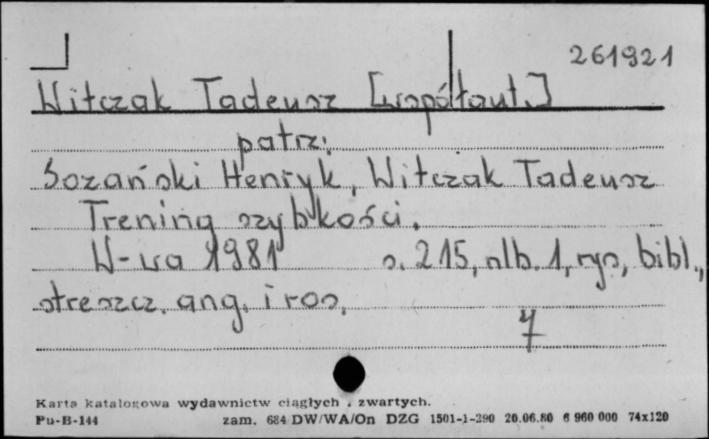 261921
Witczak Tadeusz [współaut.]
patrz:
Sozański Henryk, Witczak Tadeusz
Trening szybkości.
W-wa 1981 s. 215, nlb. 1, rys, bibl.,
streszcz. ang. i ros.
4
Karta katalogowa wydawnictw ciągłych i zwartych.
Pu-B-144 zam. 684/DW/WA/On DZG 1501-1-290 20.06.80 6 960 000 74x120